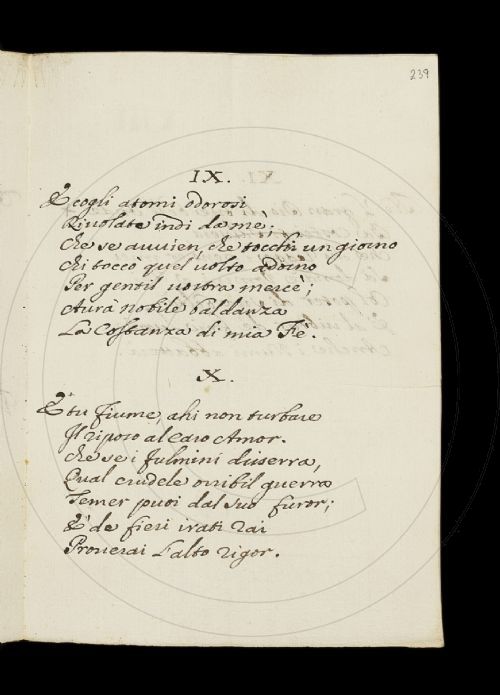 239
IX.
E cogli atomi odorosi,
Rivolate indi da me;
Che se avvien, che tocchi un giorno
Chi toccò quel volto adorno
Per gentil vostra mercè;
Avrà nobile baldanza
La Costanza di mia Fè.
X.
E tu fiume, ahi non turbare
Il riposo al Caro Amor.
Che se i fulmini disserra,
Qual crudele orribil guerra
Temer puoi dal suo furor;
E de fieri irati rai
Proverai l'alto rigor.